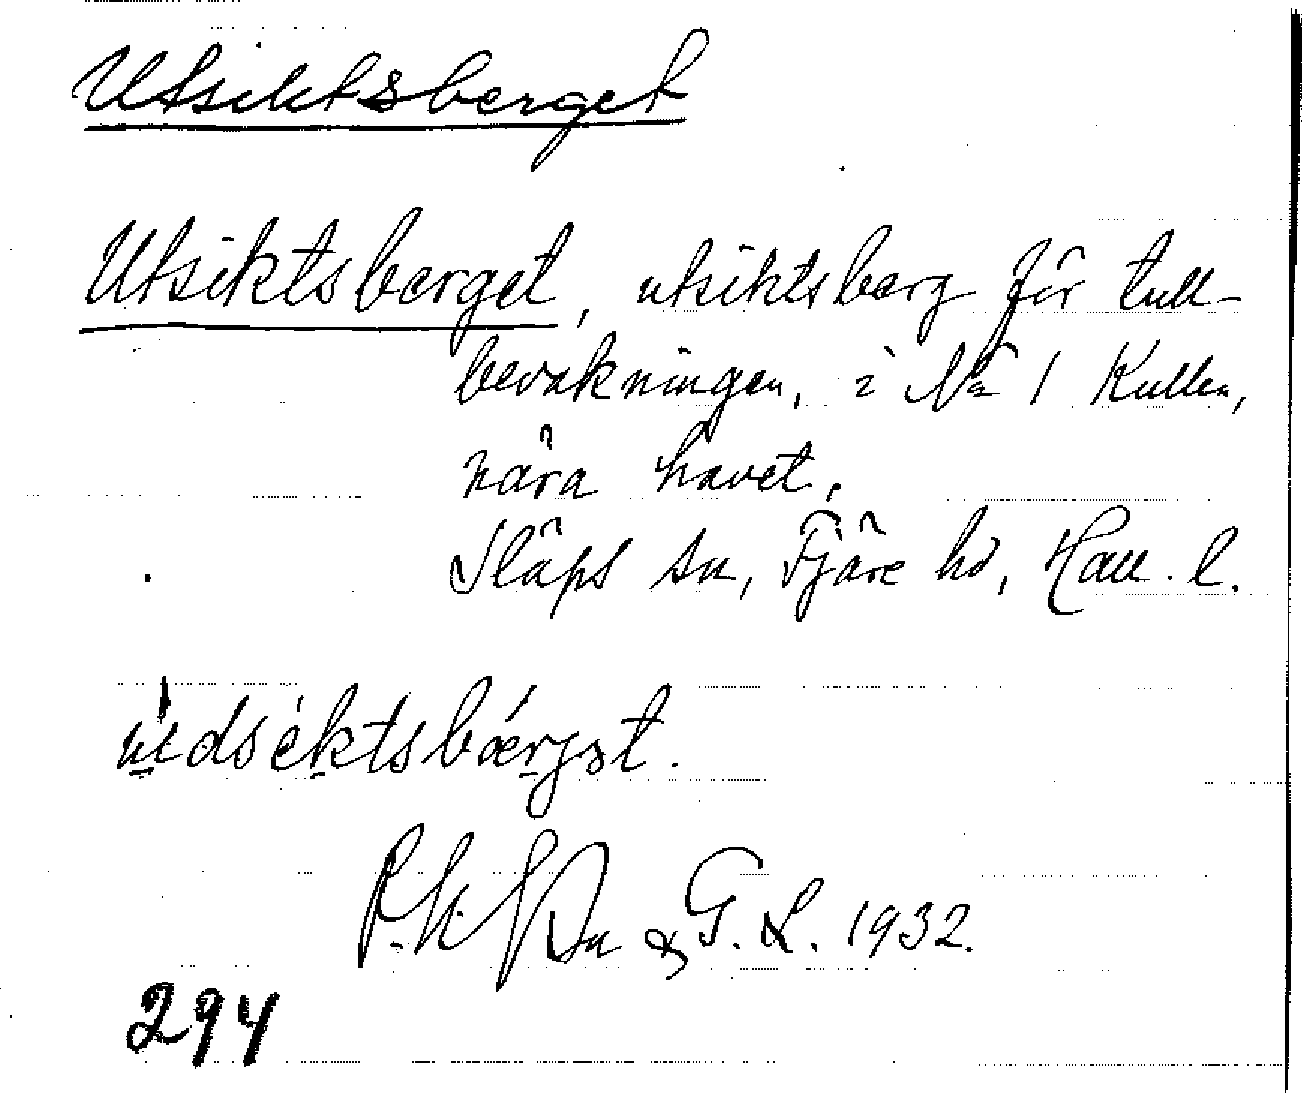 Utsiktsberget
Utsiktsberget, utsiktsberg för tull-
bevakningen, i No 1 Kullen,
nära havet.
Släps sn, Fjäre hd, Hall. l.
& G. L. 1932.
294